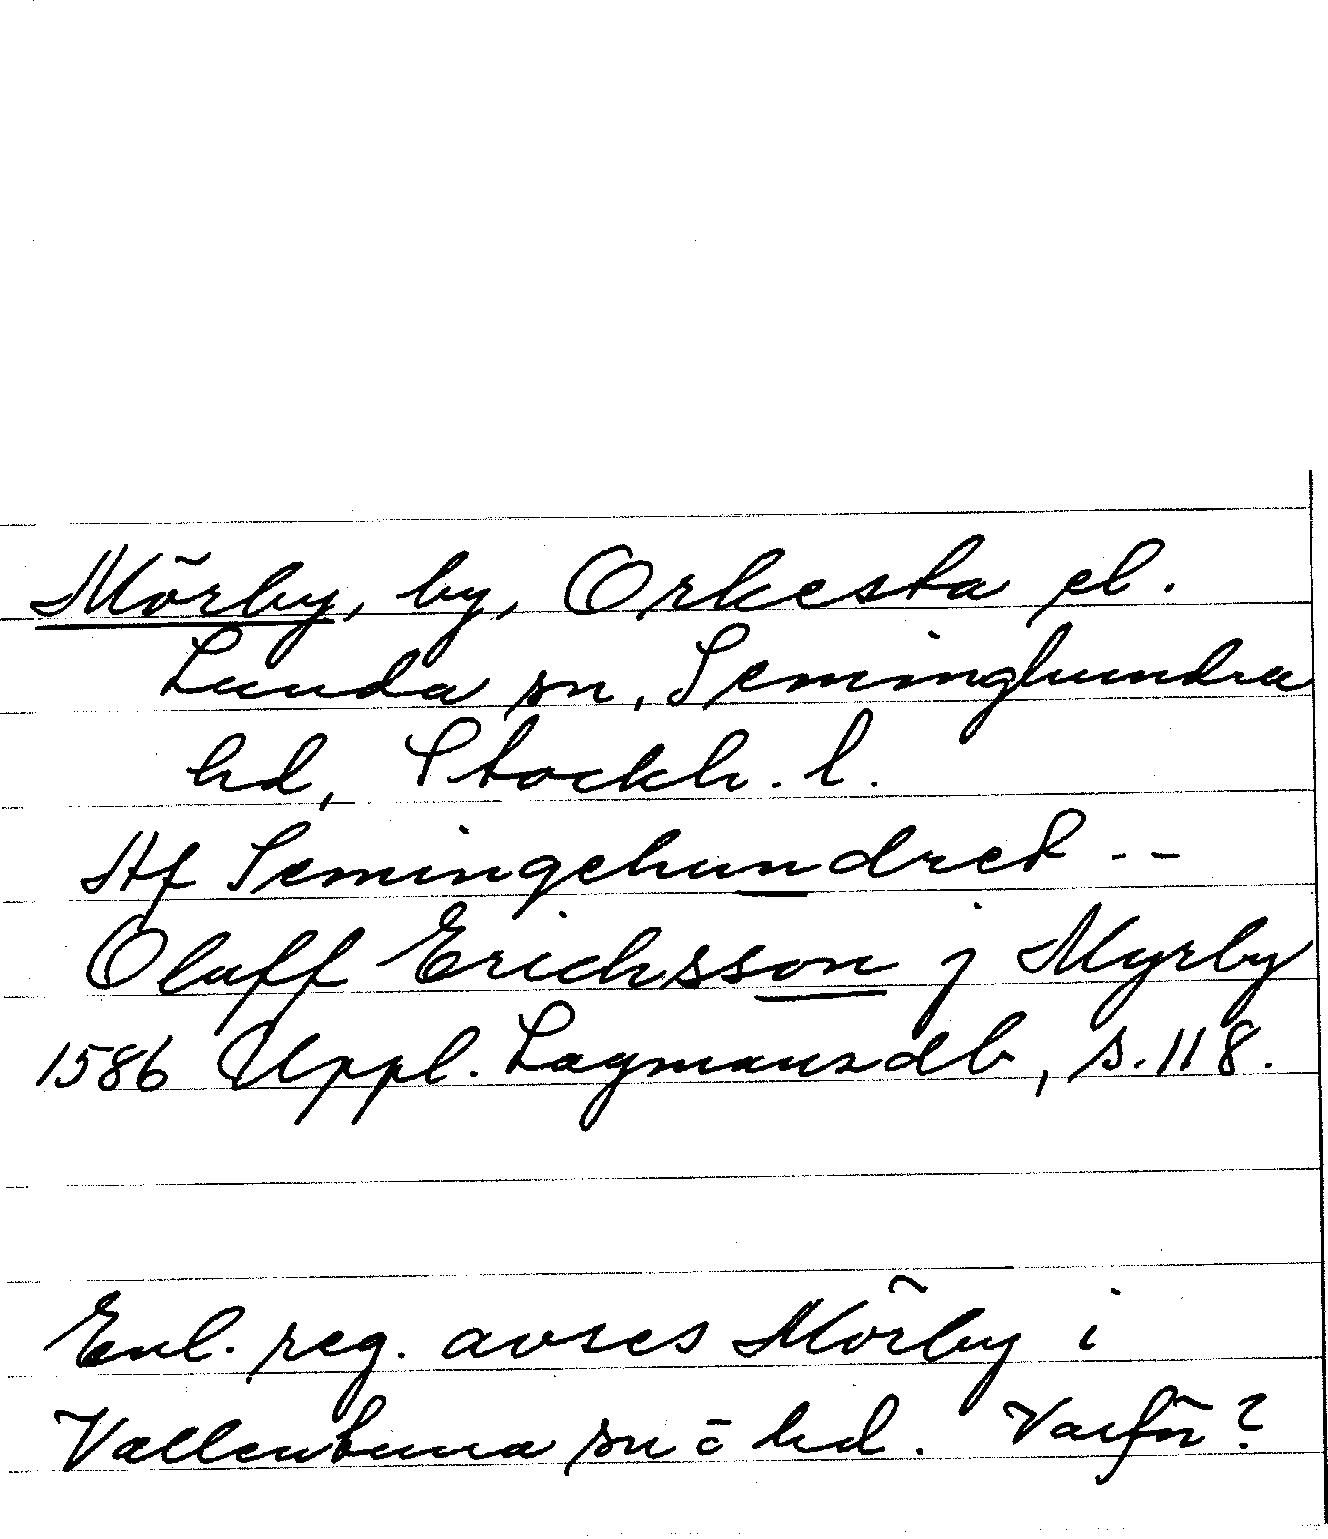 Mörby, by, Orkesta el.
Lunda sn, Seminghundra
hd, Stockh. l.
Af Semingehundret --
Oluff Erichsson j Myrby
1586 Uppl. Lagmansdb, s. 118.
Enl. reg. avses Mörby i
Vallentuna sn o hd. Varför?